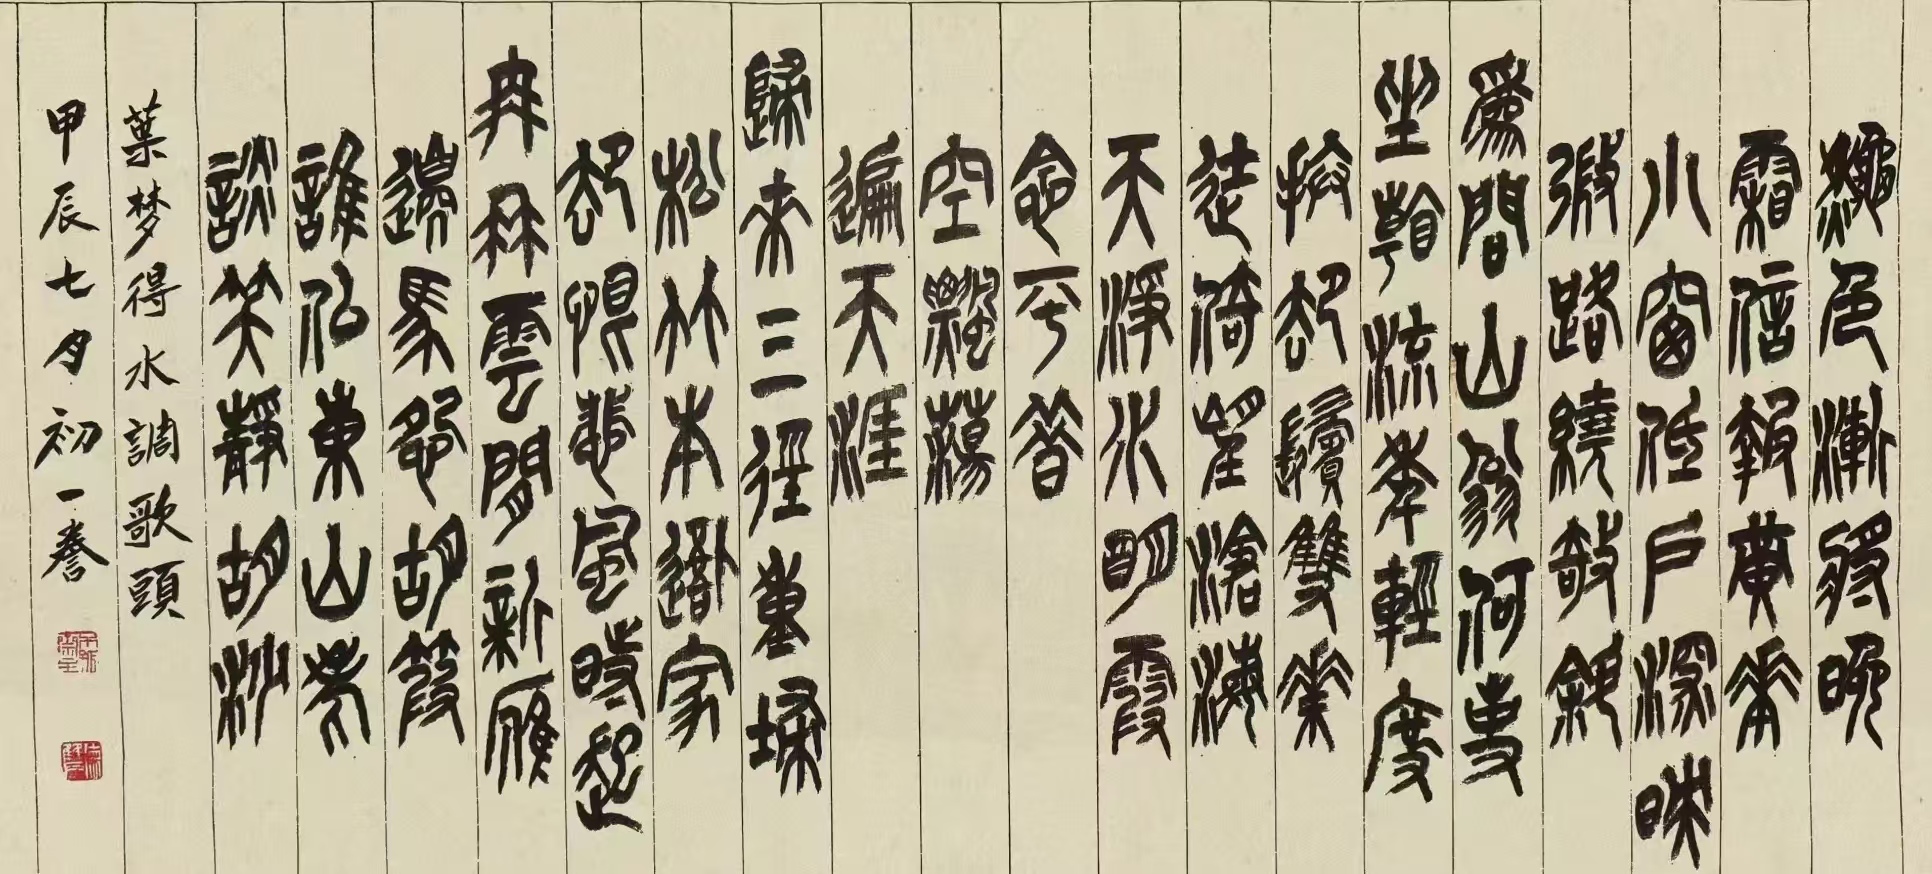 龝色漸將晚
霜信報黃花
小窗低戶深映
微路繞敧斜
爲問山翁何事
坐看流年輕度
拚却鬢雙華
徒倚望滄海
天淨水明霞
念平昔
空飄蕩
遍天涯
歸來三徑重埽
松竹本吾家
却恨悲風時起
冉冉雲間新雁
邊馬怨胡葭
誰似東山老
談笑靜胡沙
葉梦得水調歌頭
甲辰七月初一誊